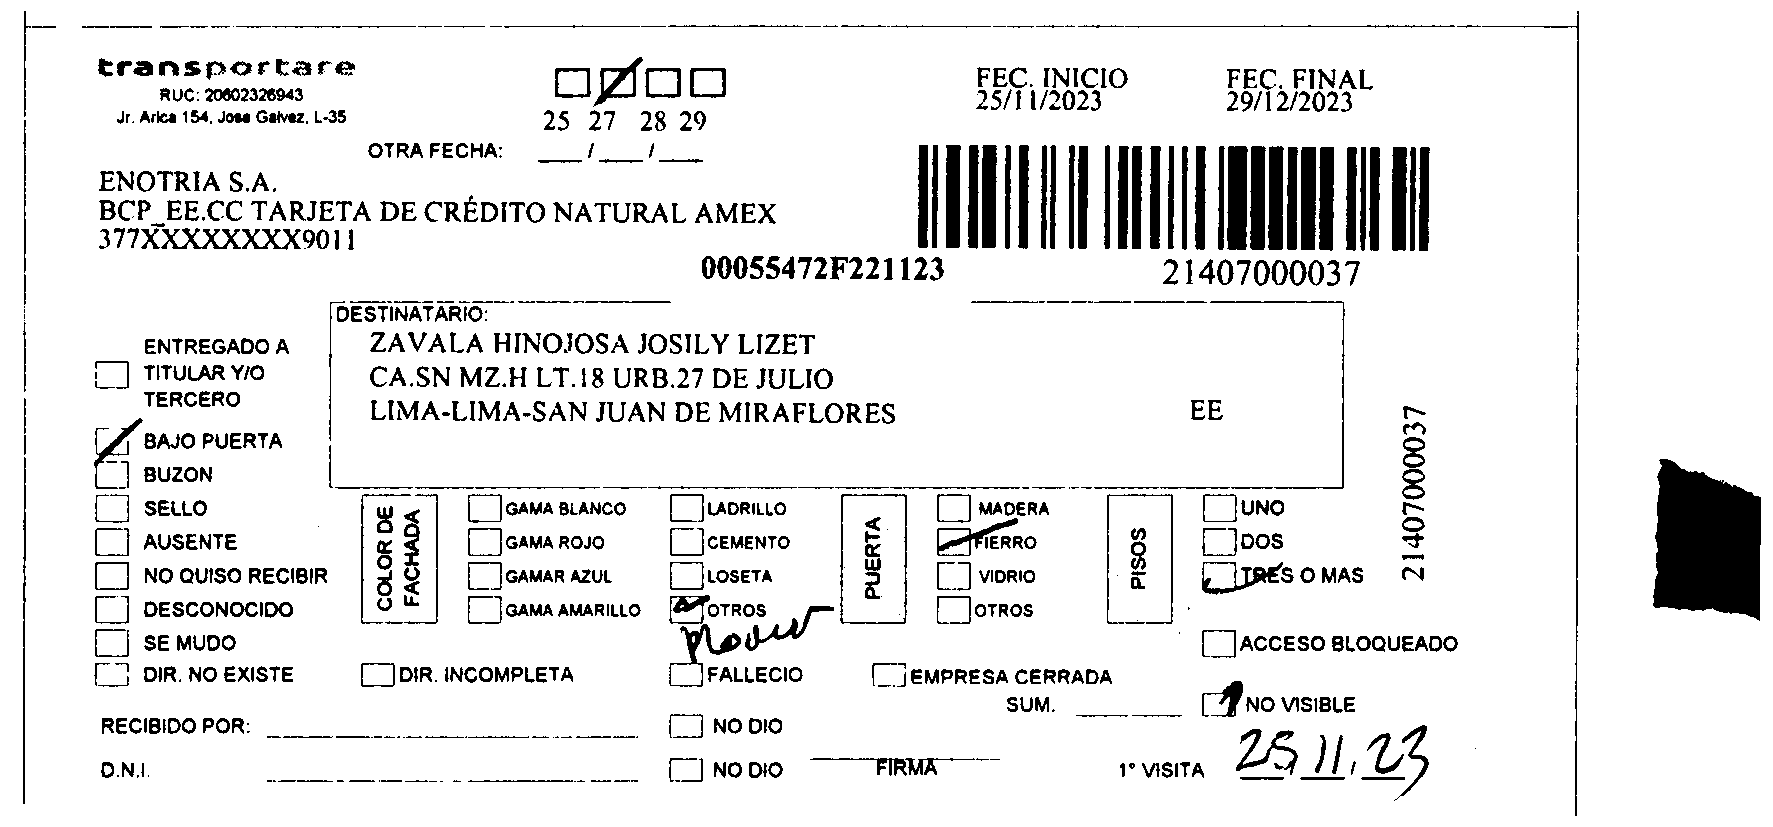 transportare
RUC: 20602326943
Jr. Arica 154, Jose Galvez, L-35
25 27 28 29
OTRA FECHA: ___/___/___
FEC. INICIO
25/11/2023
FEC. FINAL
29/12/2023
ENOTRIA S.A.
BCP_EE.CC TARJETA DE CRÉDITO NATURAL AMEX
377XXXXXXXX9011
00055472F221123
21407000037
DESTINATARIO:
ZAVALA HINOJOSA JOSILY LIZET
CA.SN MZ.H LT.18 URB.27 DE JULIO
LIMA-LIMA-SAN JUAN DE MIRAFLORES EE
21407000037
ENTREGADO A
TITULAR Y/O
TERCERO
BAJO PUERTA
BUZON
SELLO
AUSENTE
NO QUISO RECIBIR
DESCONOCIDO
SE MUDO
DIR. NO EXISTE
COLOR DE
FACHADA
GAMA BLANCO
GAMA ROJO
GAMAR AZUL
GAMA AMARILLO
LADRILLO
CEMENTO
LOSETA
OTROS
PUERTA
MADERA
FIERRO
VIDRIO
OTROS
PISOS
UNO
DOS
TRES O MAS
ACCESO BLOQUEADO
DIR. INCOMPLETA
FALLECIO
EMPRESA CERRADA
SUM. ________
NO VISIBLE
RECIBIDO POR:
NO DIO
D.N.I.
NO DIO
FIRMA
1° VISITA 25 11.23